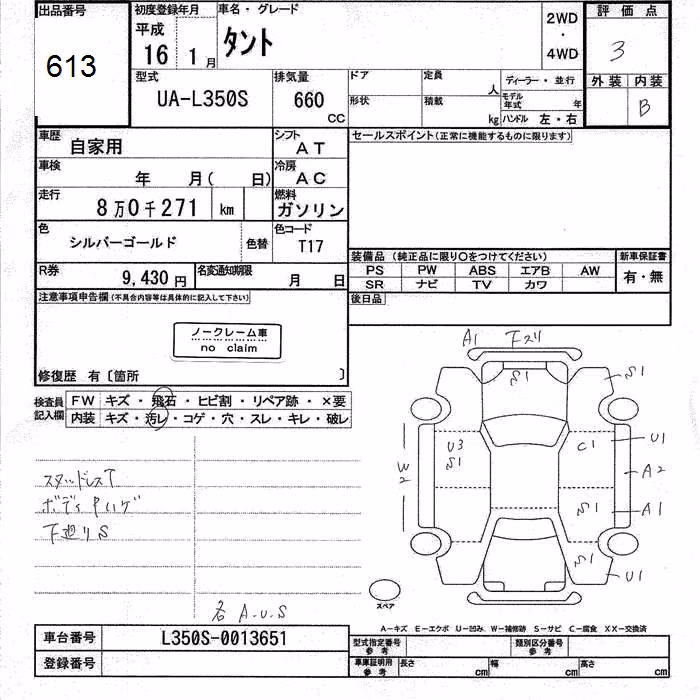 出品番号
613
初度登録年月
平成
16 1月
車名・グレード
タント
2WD
・
4WD
評価点
3
外装 内装
B
型式
UA-L350S
排気量
660
CC
ドア
形状
定員
人
積載
kg
ディーラー・並行
モデル年式 年
ハンドル 左・右
車歴
自家用
シフト
AT
車検
年 月( 日)
冷房
AC
走行
8万0千271 km
燃料
ガソリン
色
シルバーゴールド
色替
色コード
T17
R券
9,430円
名変通知期限
月 日
セールスポイント(正常に機能するものに限ります)
装備品 (純正品に限り○をつけてください)
PS PW ABS エアB AW
SR ナビ TV カワ
新車保証書
有・無
後日品
注意事項申告欄(不具合内容等は具体的に記入して下さい)
ノークレーム車
no claim
修復歴 有〔箇所 〕
検査員
記入欄
FW キズ・飛石・ヒビ割・リペア跡・×要
内装 キズ・汚レ・コゲ・穴・スレ・キレ・破レ
スタッドレスT
ボディ中ハゲ
下廻りS
各A.U.S
A1 下スリ
S1
S1
U3
S1
C1
U1
2W
A2
S1
A1
S1
U1
スペア
A－キズ E－エクボ U－凹み W－補修跡 S－サビ C－腐食 XX－交換済
車台番号
L350S-0013651
登録番号
型式指定番号
参考
類別区分番号
参考
車庫証明用
参考
長さ cm
幅 cm
高さ cm